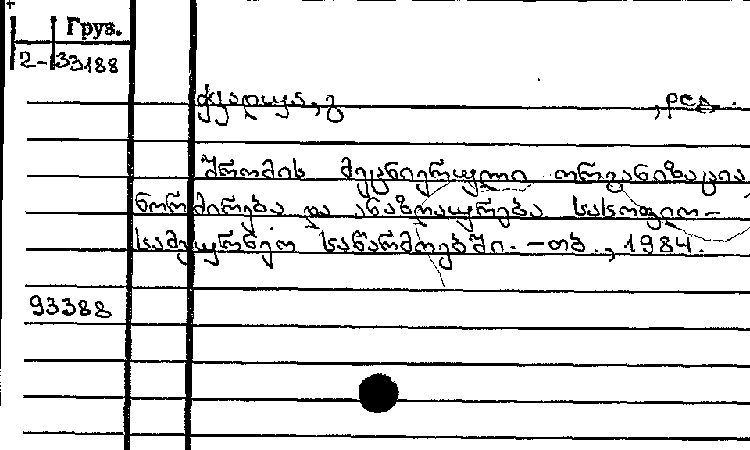 Груз.
2-33188
, რედ.
შრომის მეცნიერული ორგანიზაცია
ნორმირება და ანაზღაურება სასოფლო-
სამეურნეო საწარმოებში. – თბ., 1984.
93388